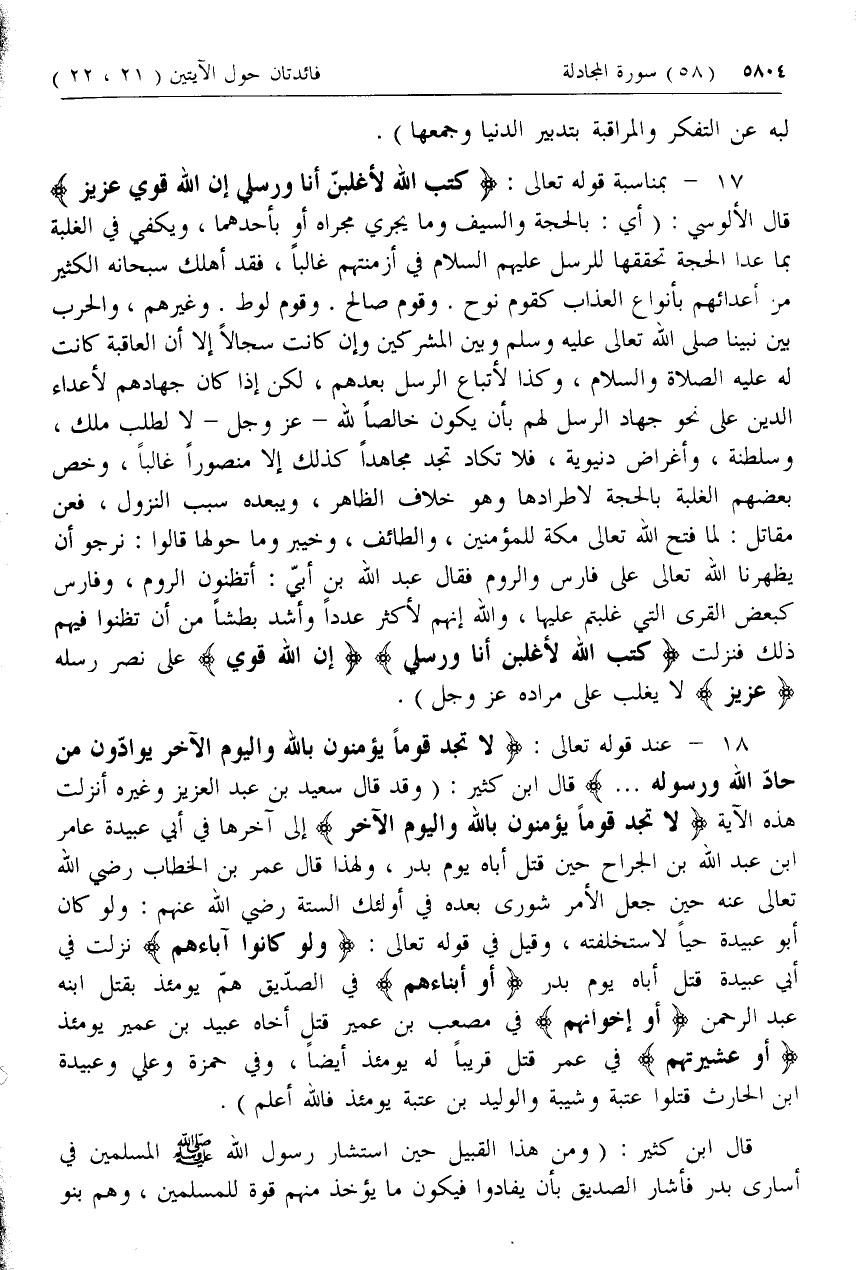 ٥٨٠٤ (٥٨) سورة المجادلة فائدتان حول الآيتين (٢١ ، ٢٢)
لبه عن التفكر والمراقبة بتدبير الدنيا وجمعها ) .
١٧ – بمناسبة قوله تعالى : ﴿ كتب الله لأغلبنّ أنا ورسلي إن الله قوي عزيز ﴾
قال الألوسي : ( أي : بالحجة والسيف وما يجري مجراه أو بأحدهما ، ويكفي في الغلبة
بما عدا الحجة تحققها للرسل عليهم السلام في أزمنتهم غالباً ، فقد أهلك سبحانه الكثير
من أعدائهم بأنواع العذاب كقوم نوح . وقوم صالح . وقوم لوط . وغيرهم ، والحرب
بين نبينا صلى الله تعالى عليه وسلم وبين المشركين وإن كانت سجالاً إلا أن العاقبة كانت
له عليه الصلاة والسلام ، وكذا لأتباع الرسل بعدهم ، لكن إذا كان جهادهم لأعداء
الدين على نحو جهاد الرسل لهم بأن يكون خالصاً لله – عز وجل – لا لطلب ملك ،
وسلطنة ، وأغراض دنيوية ، فلا تكاد تجد مجاهداً كذلك إلا منصوراً غالباً ، وخص
بعضهم الغلبة بالحجة لاطرادها وهو خلاف الظاهر ، ويبعده سبب النزول ، فعن
مقاتل : لما فتح الله تعالى مكة للمؤمنين ، والطائف ، وخيبر وما حولها قالوا : نرجو أن
يظهرنا الله تعالى على فارس والروم فقال عبد الله بن أبيّ : أتظنون الروم ، وفارس
كبعض القرى التي غلبتم عليها ، والله إنهم لأكثر عدداً وأشد بطشاً من أن تظنوا فيهم
ذلك فنزلت ﴿ كتب الله لأغلبن أنا ورسلي ﴾ ﴿ إن الله قوي ﴾ على نصر رسله
﴿ عزيز ﴾ لا يغلب على مراده عز وجل ) .
١٨ – عند قوله تعالى : ﴿ لا تجد قوماً يؤمنون بالله واليوم الآخر يوادّون من
حادّ الله ورسوله ... ﴾ قال ابن كثير : ( وقد قال سعيد بن عبد العزيز وغيره أنزلت
هذه الآية ﴿ لا تجد قوماً يؤمنون بالله واليوم الآخر ﴾ إلى آخرها في أبي عبيدة عامر
ابن عبد الله بن الجراح حين قتل أباه يوم بدر ، ولهذا قال عمر بن الخطاب رضي الله
تعالى عنه حين جعل الأمر شورى بعده في أولئك الستة رضي الله عنهم : ولو كان
أبو عبيدة حياً لاستخلفته ، وقيل في قوله تعالى : ﴿ ولو كانوا آباءهم ﴾ نزلت في
أبي عبيدة قتل أباه يوم بدر ﴿ أو أبناءهم ﴾ في الصدّيق همّ يومئذ بقتل ابنه
عبد الرحمن ﴿ أو إخوانهم ﴾ في مصعب بن عمير قتل أخاه عبيد بن عمير يومئذ
﴿ أو عشيرتهم ﴾ في عمر قتل قريباً له يومئذ أيضاً ، وفي حمزة وعلي وعبيدة
ابن الحارث قتلوا عتبة وشيبة والوليد بن عتبة يومئذ فالله أعلم ) .
قال ابن كثير : ( ومن هذا القبيل حين استشار رسول الله ﷺ المسلمين في
أسارى بدر فأشار الصديق بأن يفادوا فيكون ما يؤخذ منهم قوة للمسلمين ، وهم بنو